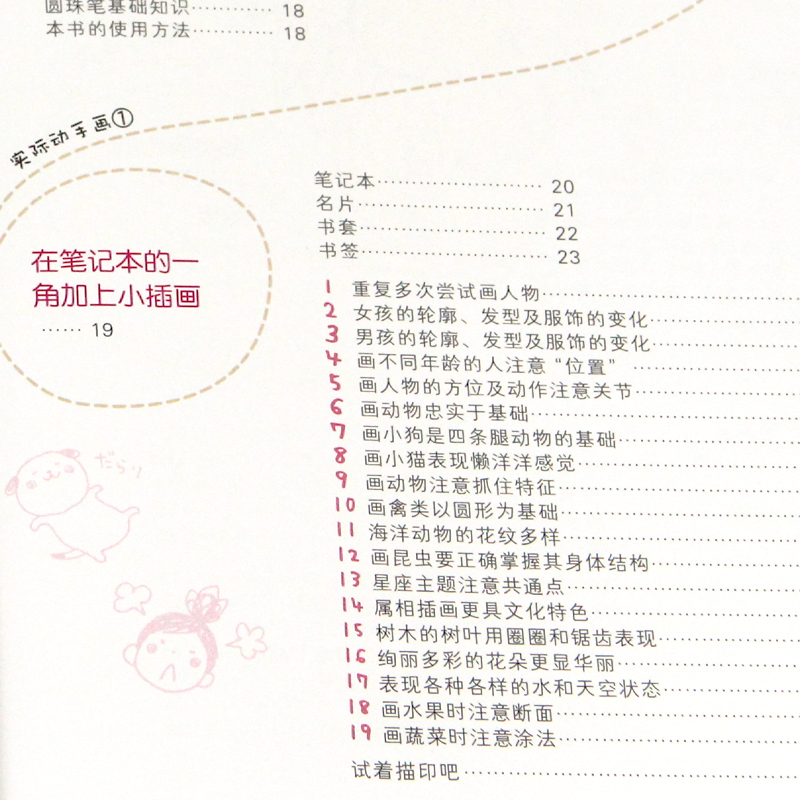 圆珠笔基础知识············ 18
本书的使用方法············ 18
实际动手画①
在笔记本的一
角加上小插画
······ 19
笔记本························ 20
名片·························· 21
书套·························· 22
书签·························· 23
1 重复多次尝试画人物
2 女孩的轮廓、发型及服饰的变化
3 男孩的轮廓、发型及服饰的变化
4 画不同年龄的人注意“位置”
5 画人物的方位及动作注意关节
6 画动物忠实于基础
7 画小狗是四条腿动物的基础
8 画小猫表现懒洋洋感觉
9 画动物注意抓住特征
10 画禽类以圆形为基础
11 海洋动物的花纹多样
12 画昆虫要正确掌握其身体结构
13 星座主题注意共通点
14 属相插画更具文化特色
15 树木的树叶用圈圈和锯齿表现
16 绚丽多彩的花朵更显华丽
17 表现各种各样的水和天空状态
18 画水果时注意断面
19 画蔬菜时注意涂法
试着描印吧
だらり